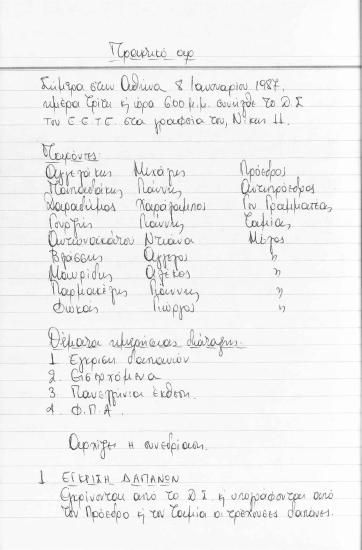 Πρακτικό αρ
Σήμερα στην Αθήνα 8 Ιανουαρίου 1987,
ημέρα Τρίτη ή ώρα 6.00 μ.μ. συνήλθε το Δ.Σ
του Ε.Ε.Τ.Ε. στα γραφεία του, Νίκης 11.
Παρόντες:
Αγγελάκης Μιχάλης Πρόεδρος
Παπαδάκης Γιάννης Αντιπρόεδρος
Χαραλάμπος Γεν. Γραμματέας
Γουρζής Γιάννης Ταμίας
Αντωνακάτου Ντιάνα Μέλος
Βλάσσης Άγγελος "
Μαυρίδης Αλέκος "
Παρμακέλης Γιάννης "
Φωκάς Γιώργος "
Θέματα ημερήσιας διάταξης:
1 Έγκριση δαπανών
2. Εισερχόμενα
3 Πανελλήνια έκθεση.
4. Φ.Π.Α.
Αρχίζει η συνεδρίαση.
1 ΕΓΚΡΙΣΗ ΔΑΠΑΝΩΝ
Εγκρίνονται από το Δ.Σ. ή υπογράφονται από
τον Πρόεδρο ή τον Ταμία οι τρέχουσες δαπάνες.